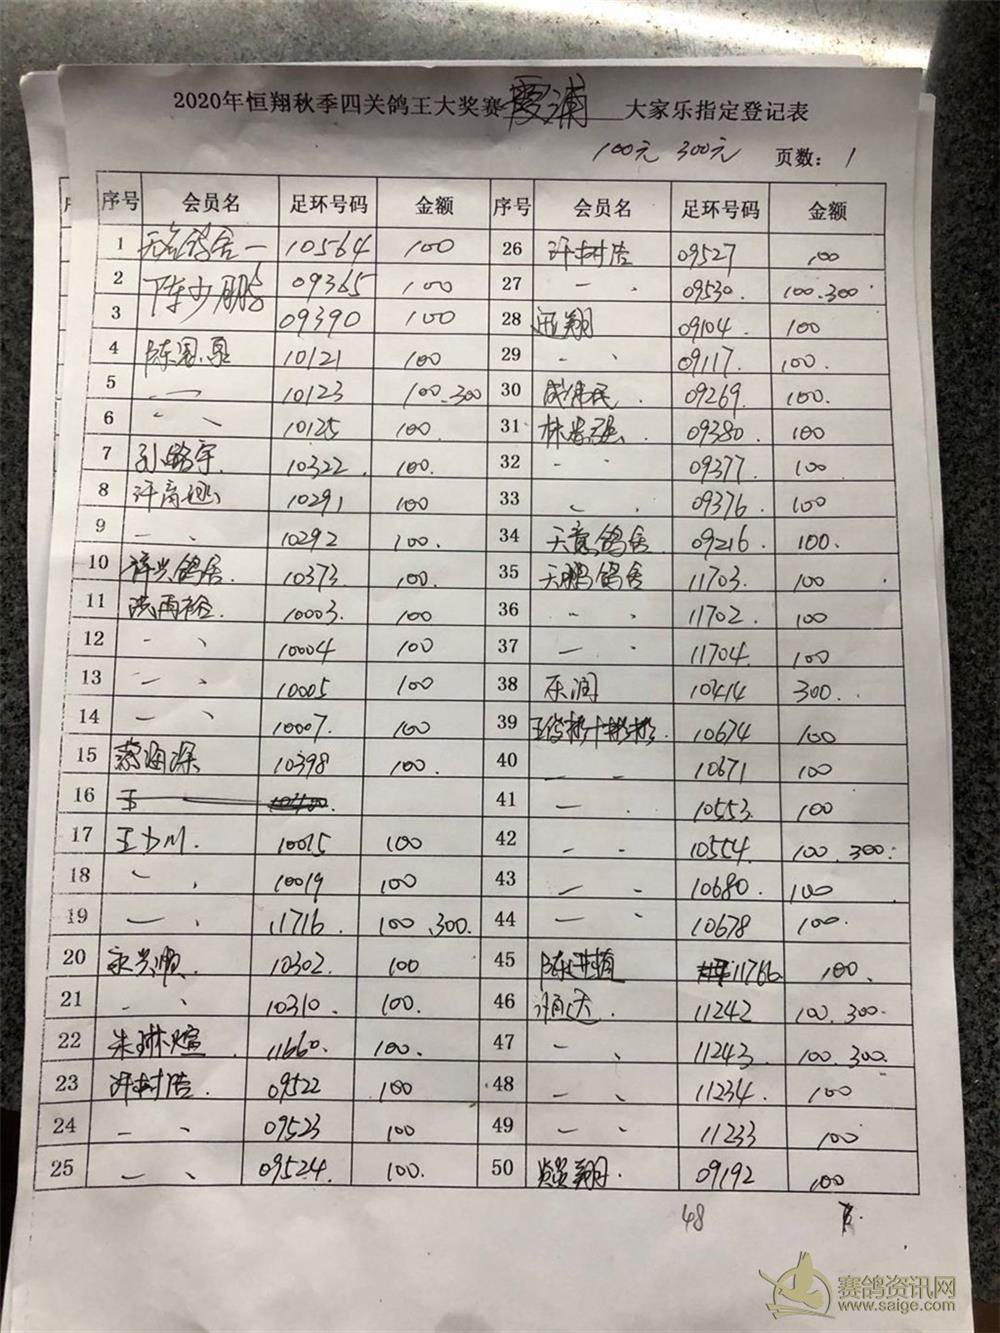 2020年恒翔秋季四关鸽王大奖赛霞浦大家乐指定登记表
100元 300元 页数：1
序号 会员名 足环号码 金额 序号 会员名 足环号码 金额
1 无名鸽舍一 10564 100 26 许树浩 09527 100
2 陈少鹏 09365 100 27 — 、 09530. 100.300.
3 09390 100 28 翔 09104. 100
4 陈恩 10121 100 29 - 、 09117. 100.
5 — 10123 100.300 30 成伟民. 09269. 100.
6 - 、 10125 100. 31 林 09380. 100
7 孙 宇. 10322. 100. 32 - - 09377. 100
8 许 10291 100 33 、 、 09376. 100
9 - 、 10292 100. 34 天意鸽舍. 09216. 100.
10 兴鸽舍. 10373 100. 35 天鹏鸽舍 11703. 100
11 洪雨 10003. 100 36 - 、 11702. 100
12 - 、 10004 100 37 — 、 11704. 100
13 - 、 10005 100 38 润 10414 300.
14 — 、 10007. 100 39 10674 100
15 蔡海深 10398 100. 40 — - 10671 100
16 王 41 — 、 10553. 100
17 王少川. 10015 100 42 - - 10554. 100.300.
18 - 、 10019 100 43 — - 10680. 100
19 — 、 11716 100.300. 44 — - 10678 100.
20 永兴顺. 10302. 100 45 陈进植 11766 100.
21 - 、 10310. 100. 46 许 达. 11242 100.300.
22 朱琳煊. 11660. 100. 47 — 、 11243. 100.300.
23 许树浩. 09522 100 48 - 、 11234. 100
24 - 、 09523 100 49 - - 11233 100
25 — 、 09524. 100. 50 翔. 09192 100
48
赛鸽资讯网
www.saige.com